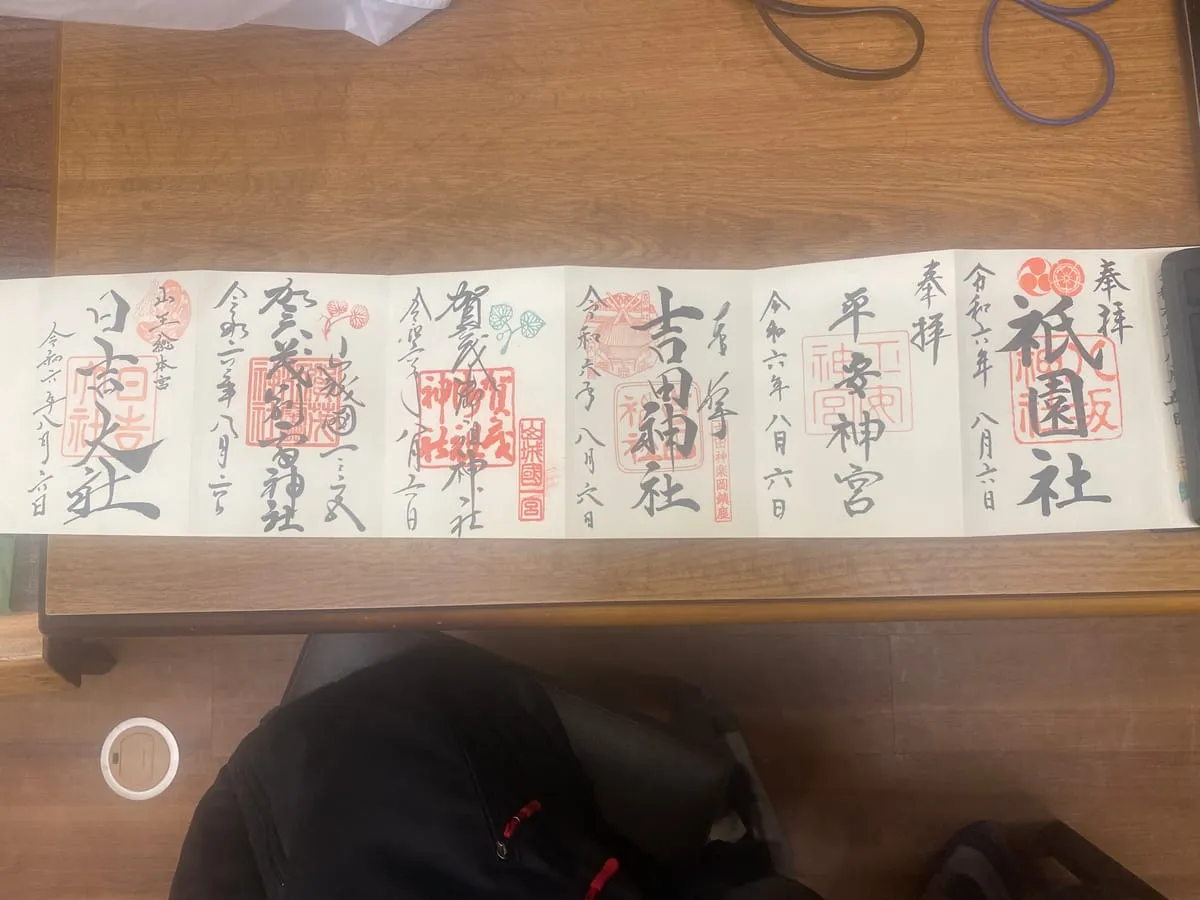 奉拝
祇園社
八坂神社
令和六年 八月六日
奉拝
平安神宮
平安神宮
令和六年八月六日
奉拝
吉田神社
神楽岡鎮座
令和六年 八月六日
山城國一宮
賀茂御祖神社
賀茂神社
令和六年八月六日
山城國一之宮
賀茂別雷神社
令和六年八月六日
山王総本宮
日吉大社
日吉
令和六年八月六日